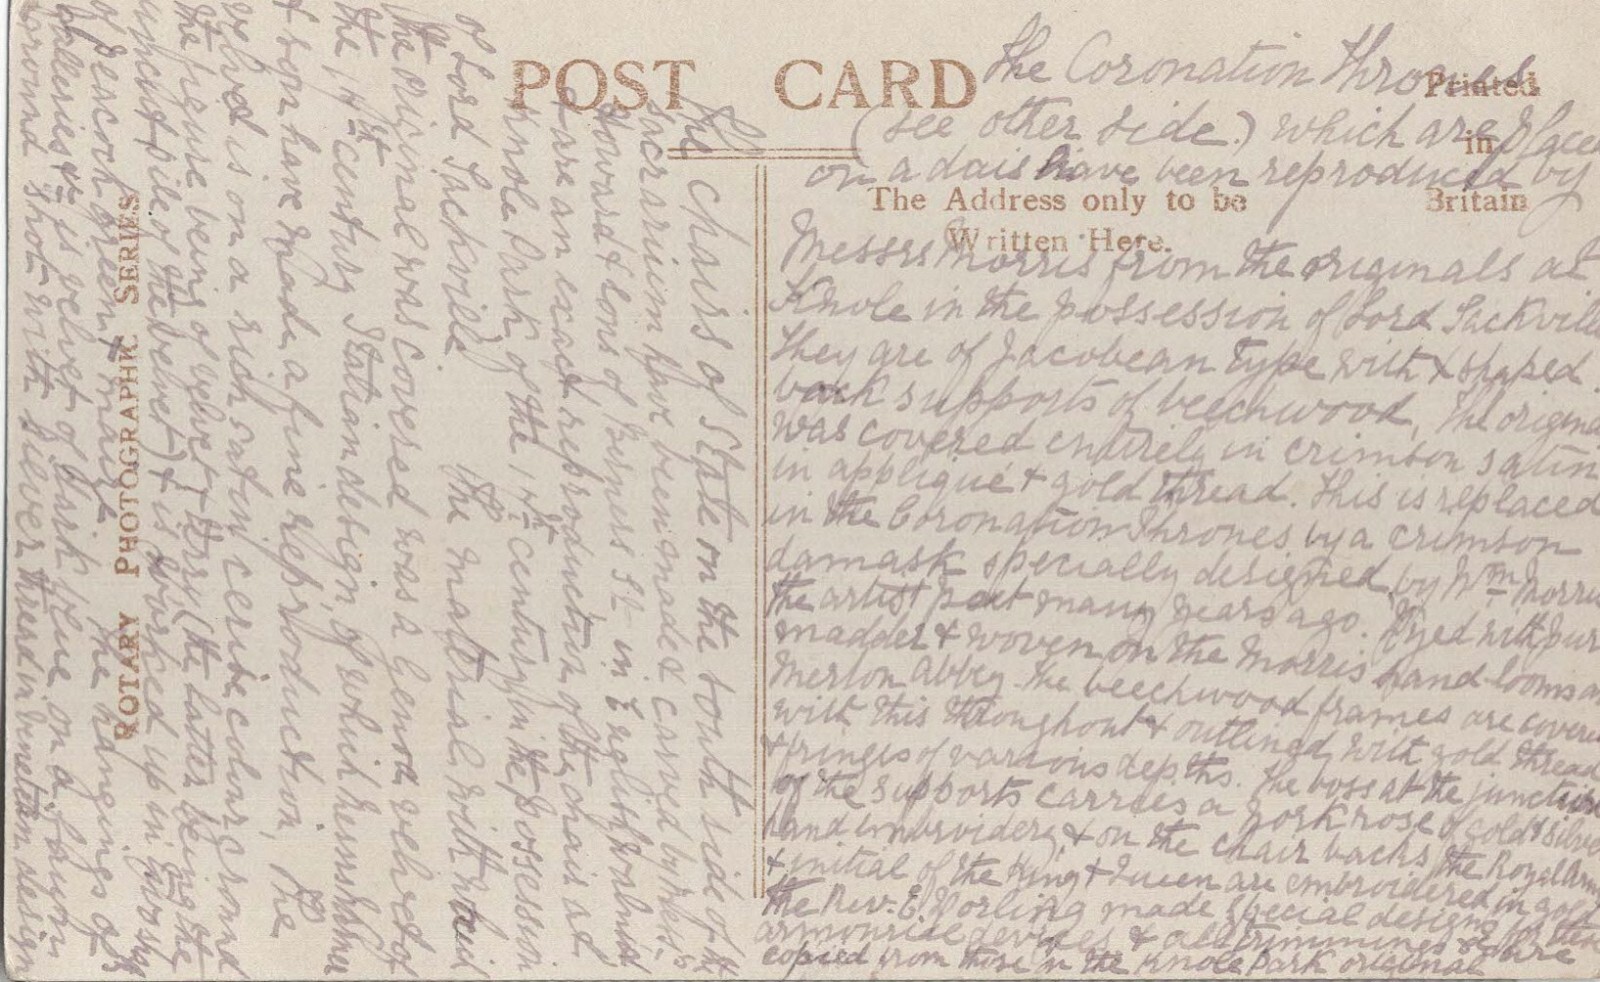 POST CARD
Printed
in
Britain
The Address only to be
Written Here.
ROTARY PHOTOGRAPHIC SERIES
The Coronation Thrones
(see other side.) which are placed
on a dais have been reproduced by
Messrs Morris from the originals at
Knole in the possession of Lord Sackville
They are of Jacobean type with x shaped
back supports of beechwood, The original
was covered entirely in crimson satin
in appliqué & gold thread. This is replaced
in the Coronation Thrones by a crimson
damask specially designed by Wm Morris
the artist poet many years ago. Dyed with pure
madder & woven on the Morris hand-looms at
Merton Abbey. The beechwood frames are covered
with this throughout & outlined with gold thread
& fringes of various depths. The boss at the junction
of the supports carries a york rose of gold & silver
hand embroidery, & on the chair backs the Royal Arms
& initial of the King & Queen are embroidered in gold
the Rev. E. Dorling made special designs for these
devices & all trimmings &c are
copied from those in the Knole Park original
The Chairs of State on the south side of the
sacrarium have been made & carved by Messrs
Howard & Sons of Berners St in English walnut
& are an exact reproduction of the chairs at
Knole Park of the 17th century in the possession
of Lord Sackville. The material with which
the original was covered was a Genoa velvet of
the 17th century Italian design, of which
& Son have made a fine reproduction, The
velvet is on a rich satin cerise colour ground
the figure being of velvet & terry (the latter being the
uncut pile of the velvet) & is worked up in
of peacock green & The hangings of
galleries &c is velvet of dark blue on a fawn
ground shot with silver thread in Venetian design